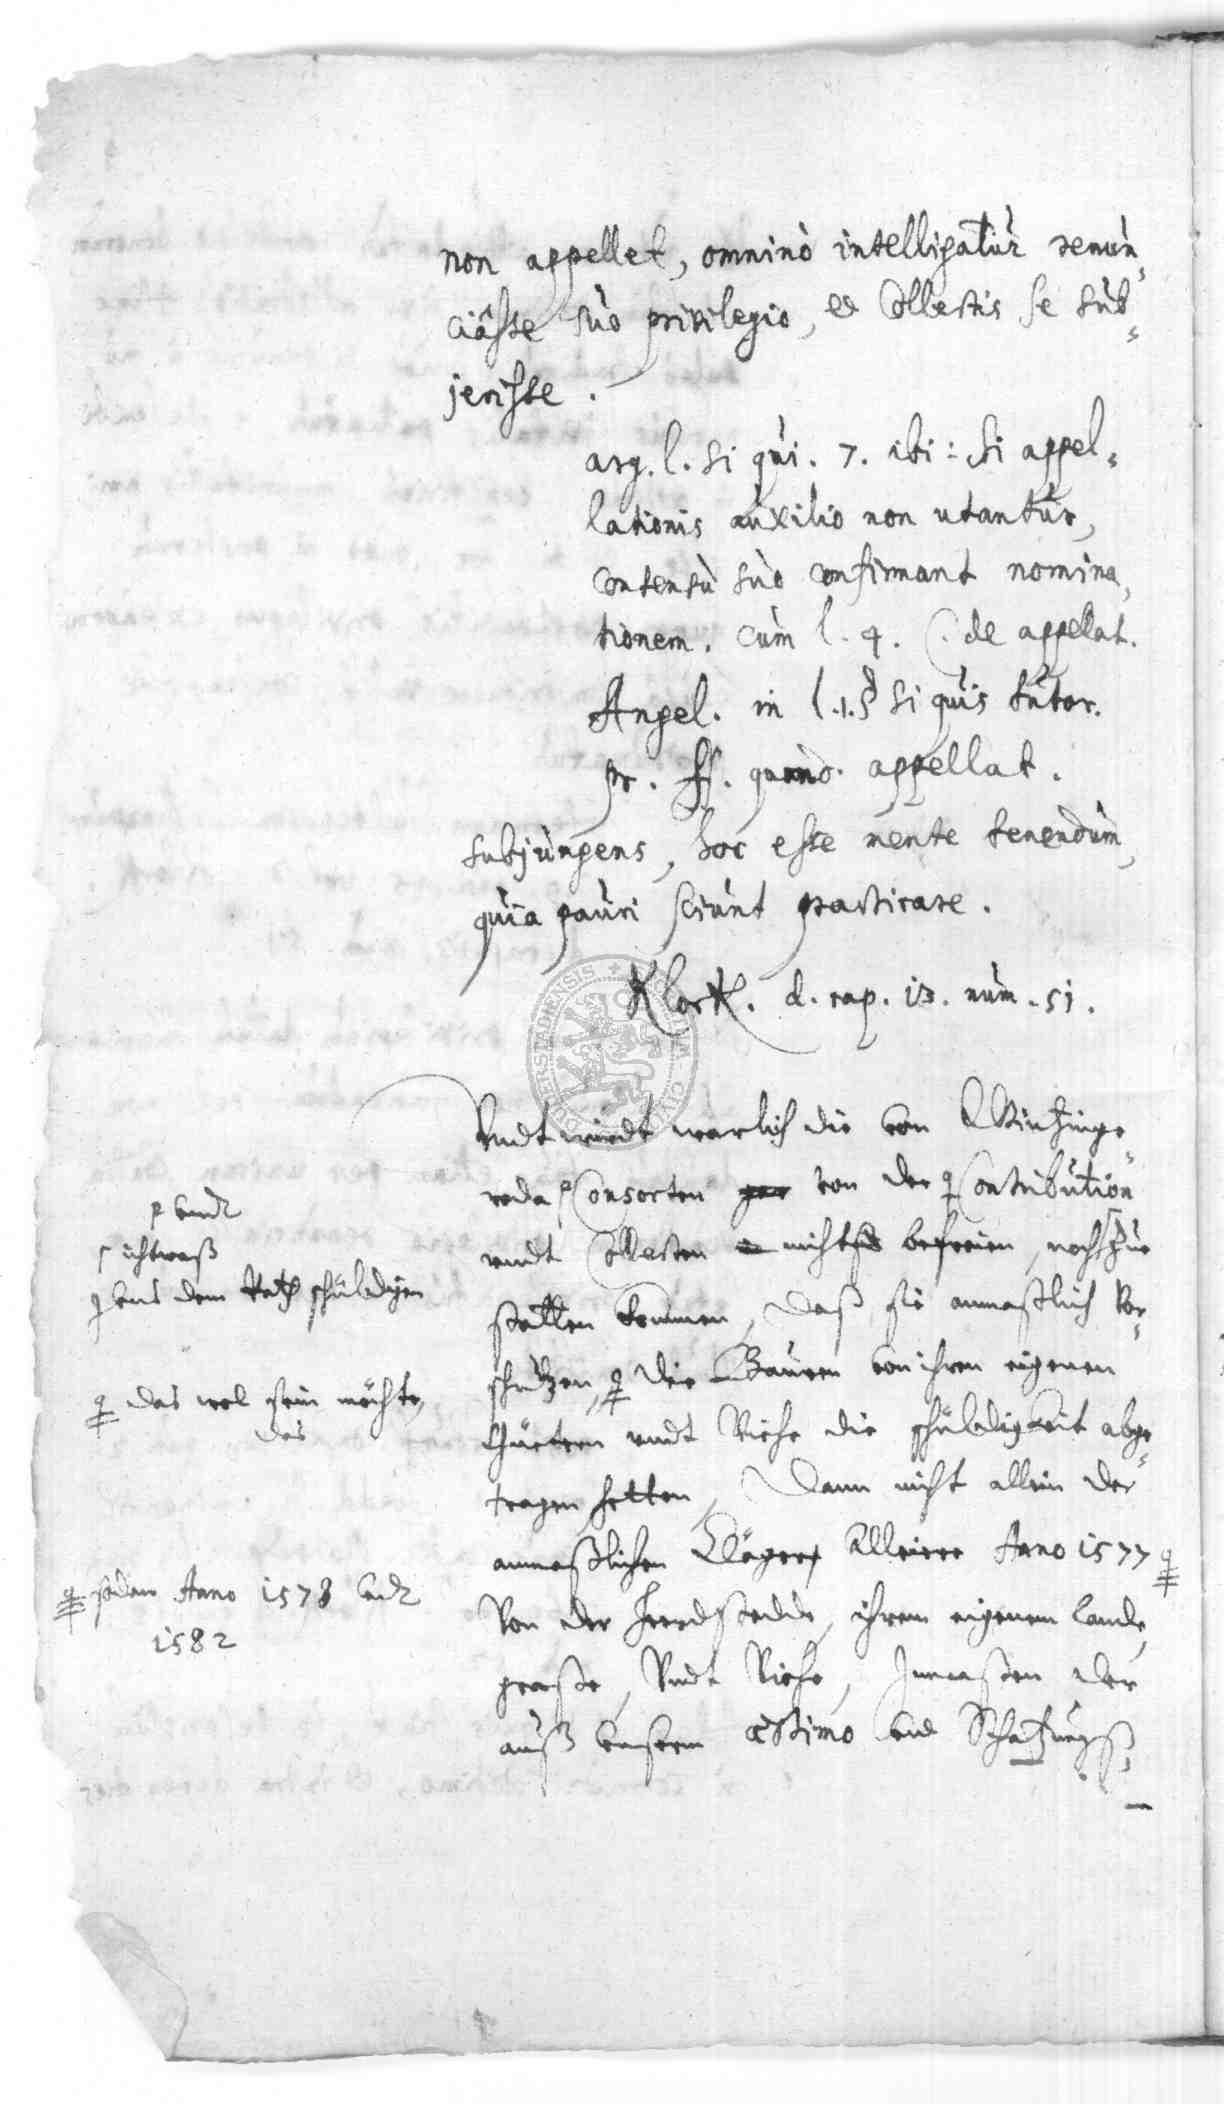 non appellet, omninò intelligatur renun-
ciasse suo privilegio, et Collectis se sub-
jecisse.
arg. l. si qui. 7. ibi: si appel-
lationis auxilio non utantur,
consensu suo confirmant nomina-
tionem. cum l. 4. C. de appellat.
Angel. in l. 1. § si quis tutor.
pr. ff. quando. appellat.
subjungens, hoc esse mente tenendum,
quia pauci sciunt practicare.
Klock. d. cap. 13. num. 51.
Undt wirdt warlich die von Wintzinge-
roda Consorten gar von der Contribution
undt Collecten nichts befreien, noch zu
statten kommen, daß sie anmaßlich vor-
schützen, die Bauren von ihren eigenen
Güetern undt Viehe die schüldigkeit abge-
tragen hetten, Dann nicht allein der
anmaßlichen Kläger Anno 1577
Von der Heerdstedde, ihrem eigenem lande,
graße, Undt Viehe, Inmaßen der
auß unserm æstimo und Schatzungß-
undt
ichtwaß
uns dem Rath schüldigen
das wol sein möchte,
das
sodan Anno 1578 undt
1582
DUDERSTADIENSIS